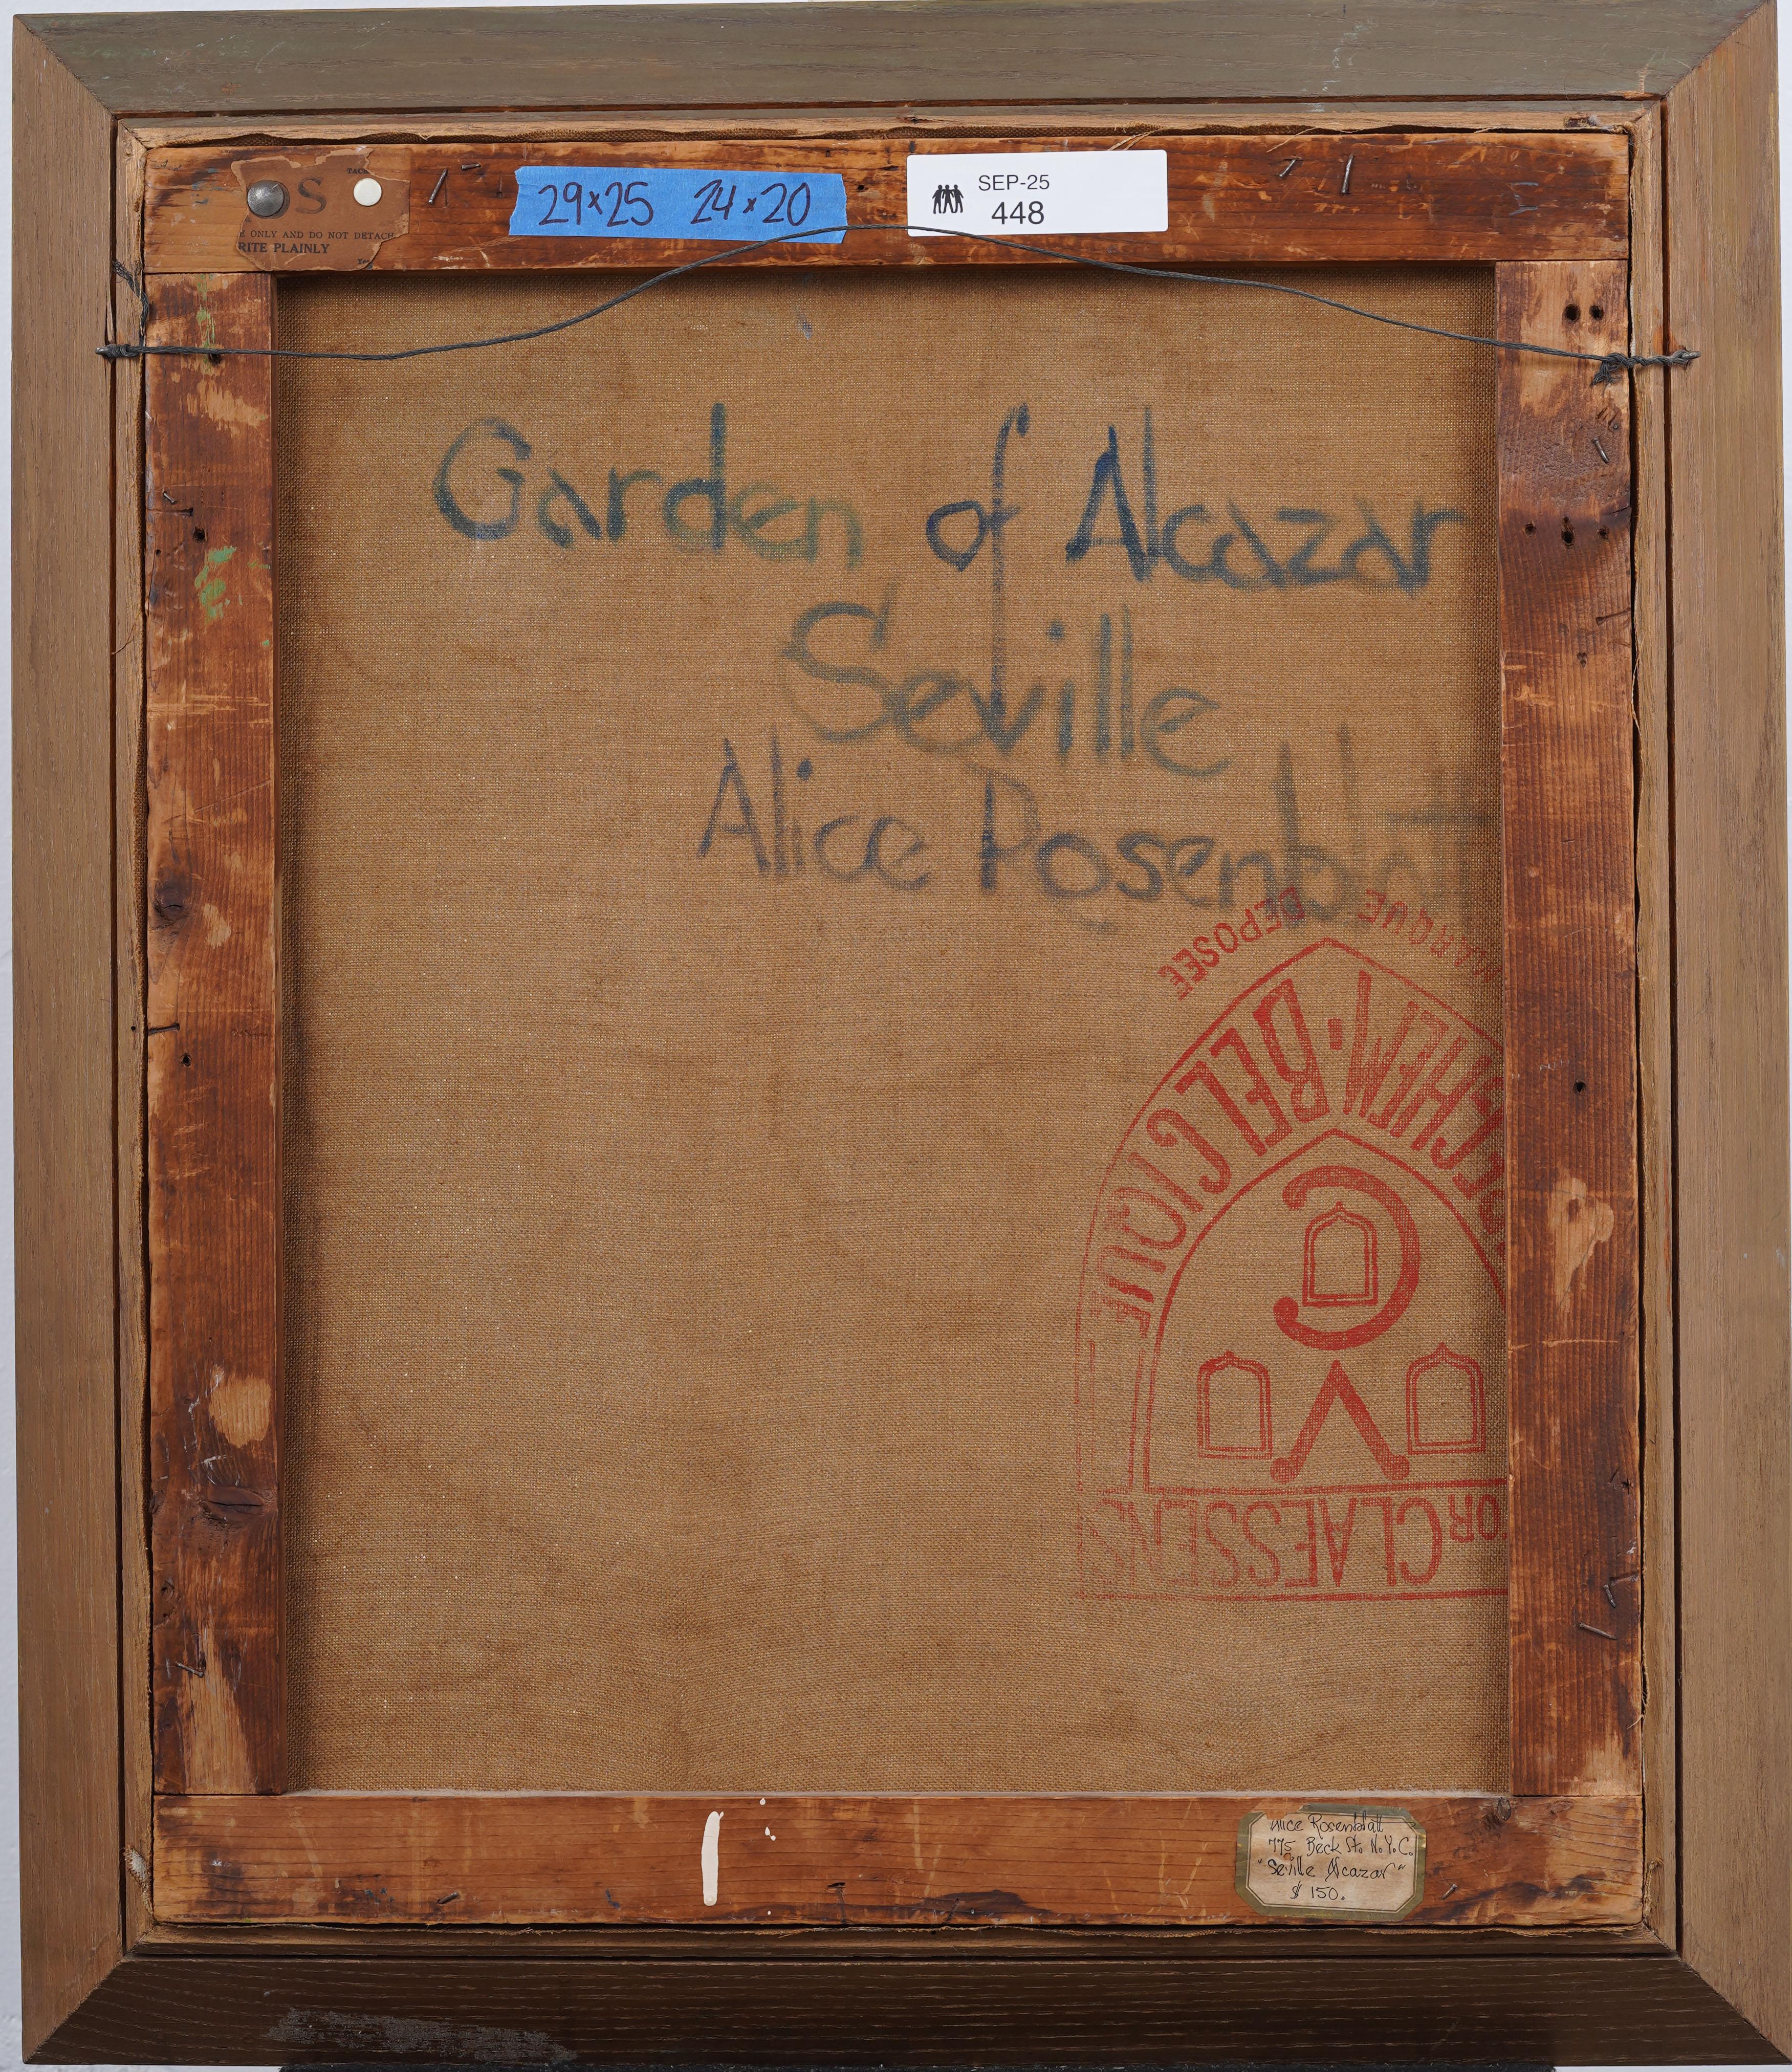 TAC
S
E ONLY AND DO NOT DETACH
RITE PLAINLY
29x25 24x20
SEP-25
448
Garden of Alcazar
Seville
Alice Rosenblatt
MARQUE DEPOSEE
CHEM. BELGIQUE
C
V
OR CLAESSENS
Alice Rosenblatt
775 Beck St. N.Y.C.
"Seville Alcazar"
$150.